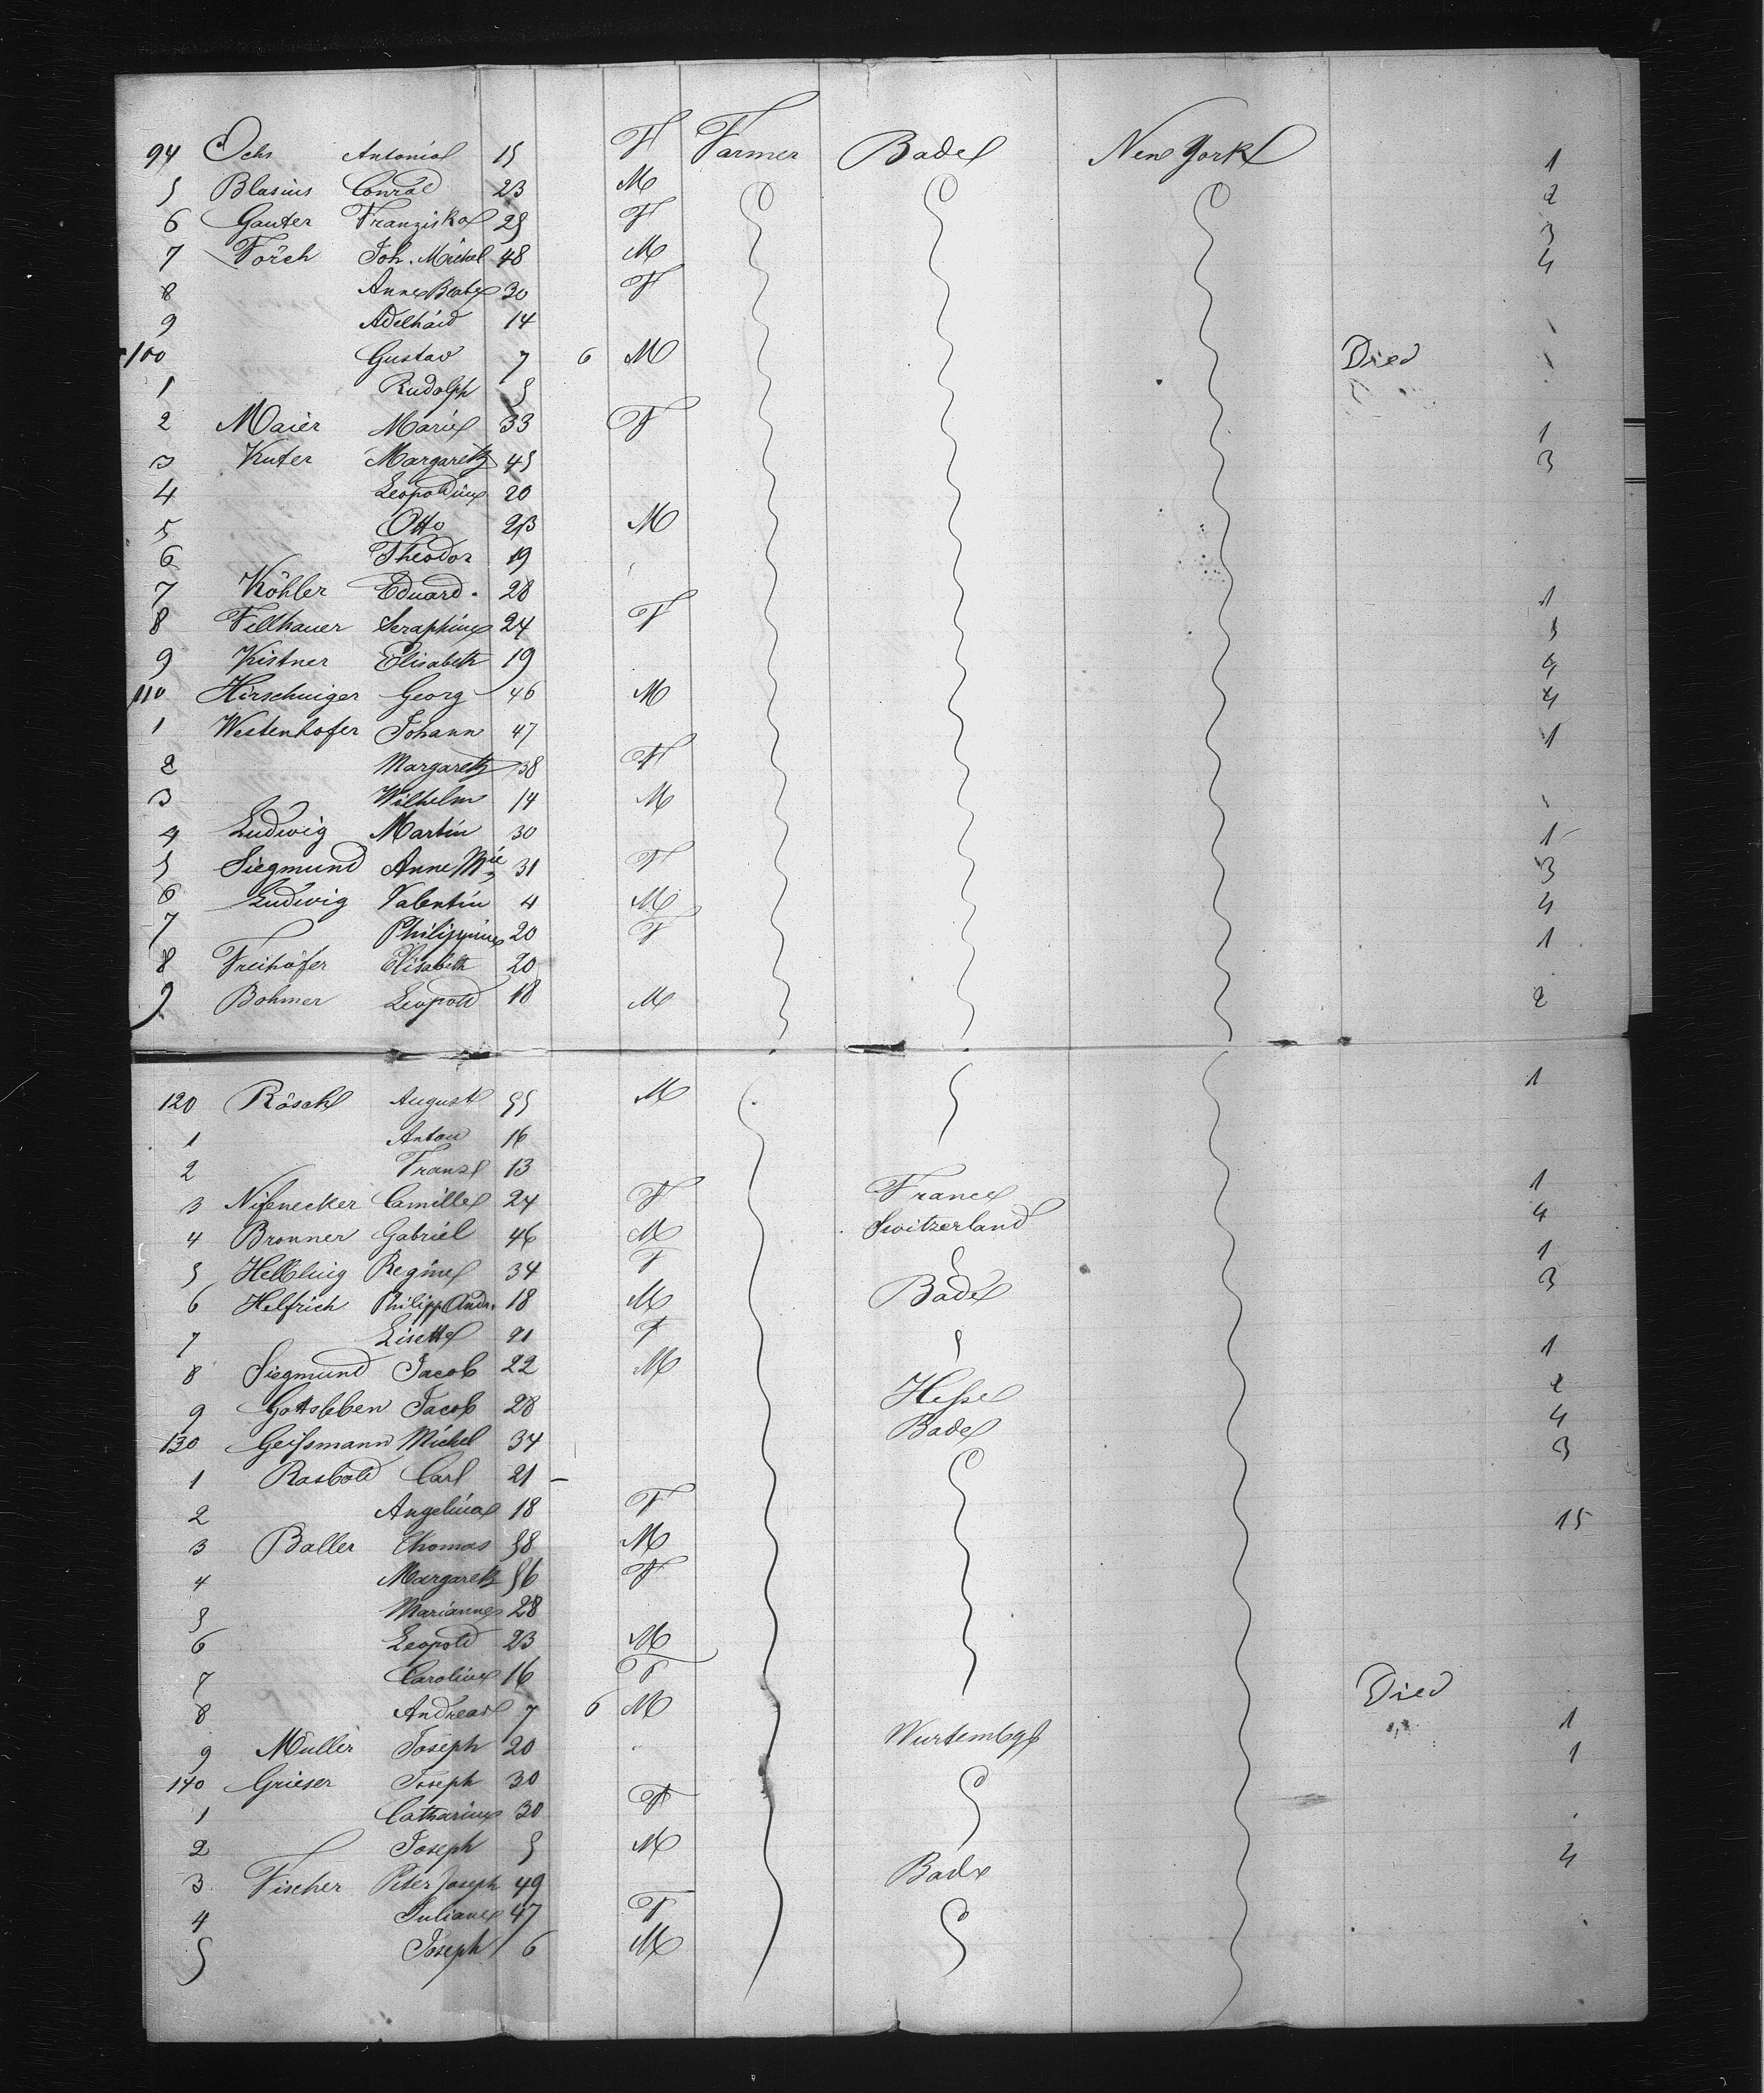 94 Ochs Antonia 15 F Farmer Bade New York 1
5 Blasius Conrad 23 M 2
6 Gauter Franziska 25 F 3
7 Förch Joh. Michel 48 M 4
8 Anne Barb 30 F
9 Adelhaid 14
100 Gustav 7 6 M Died
1 Rudolph 5
2 Maier Marie 33 F 1
3 Kuter Margareth 45 3
4 Leopoldine 20
5 Otto 23 M
6 Theodor 19
7 Köhler Eduard. 28 1
8 Fellhauer Seraphine 24 F 3
9 Kistner Elisabeth 19 4
110 Hirschuiger Georg 46 M 4
1 Westenhofer Johann 47 1
2 Margareth 38 F
3 Wilhelm 14 M
4 Ludwig Martin 30 1
5 Siegmund Anne Mie 31 F 3
6 Ludwig Valentin 4 M 4
7 Philippine 20 F 1
8 Freihöfer Elisabeth 20
9 Bohmer Leopold 18 M 2
120 Rösch August 55 M 1
1 Anton 16
2 Franz 13
3 Nifenecker Camille 24 F France 1
4 Bronner Gabriel 46 M Switzerland 4
5 Helbling Regine 34 F 1
6 Helfrich Philipp Andr. 18 M Bade 3
7 Lisette 21 F
8 Siegmund Jacob 22 M 1
9 Gottsleben Jacob 28 Hesse 2
130 Geissmann Michel 34 Bade 4
1 Rasbold Carl 21 3
2 Angelina 18 F
3 Baller Thomas 58 M 15
4 Margareth 56 F
5 Marianne 28
6 Leopold 23 M
7 Caroline 16 F
8 Andreas 7 6 M Died
9 Muller Joseph 20 Wurtembg 1
140 Grieser Joseph 30 1
1 Catharine 30 F
2 Joseph 5 M
3 Fischer Peter Joseph 49 Bade 4
4 Juliane 47 F
5 Joseph 6 M